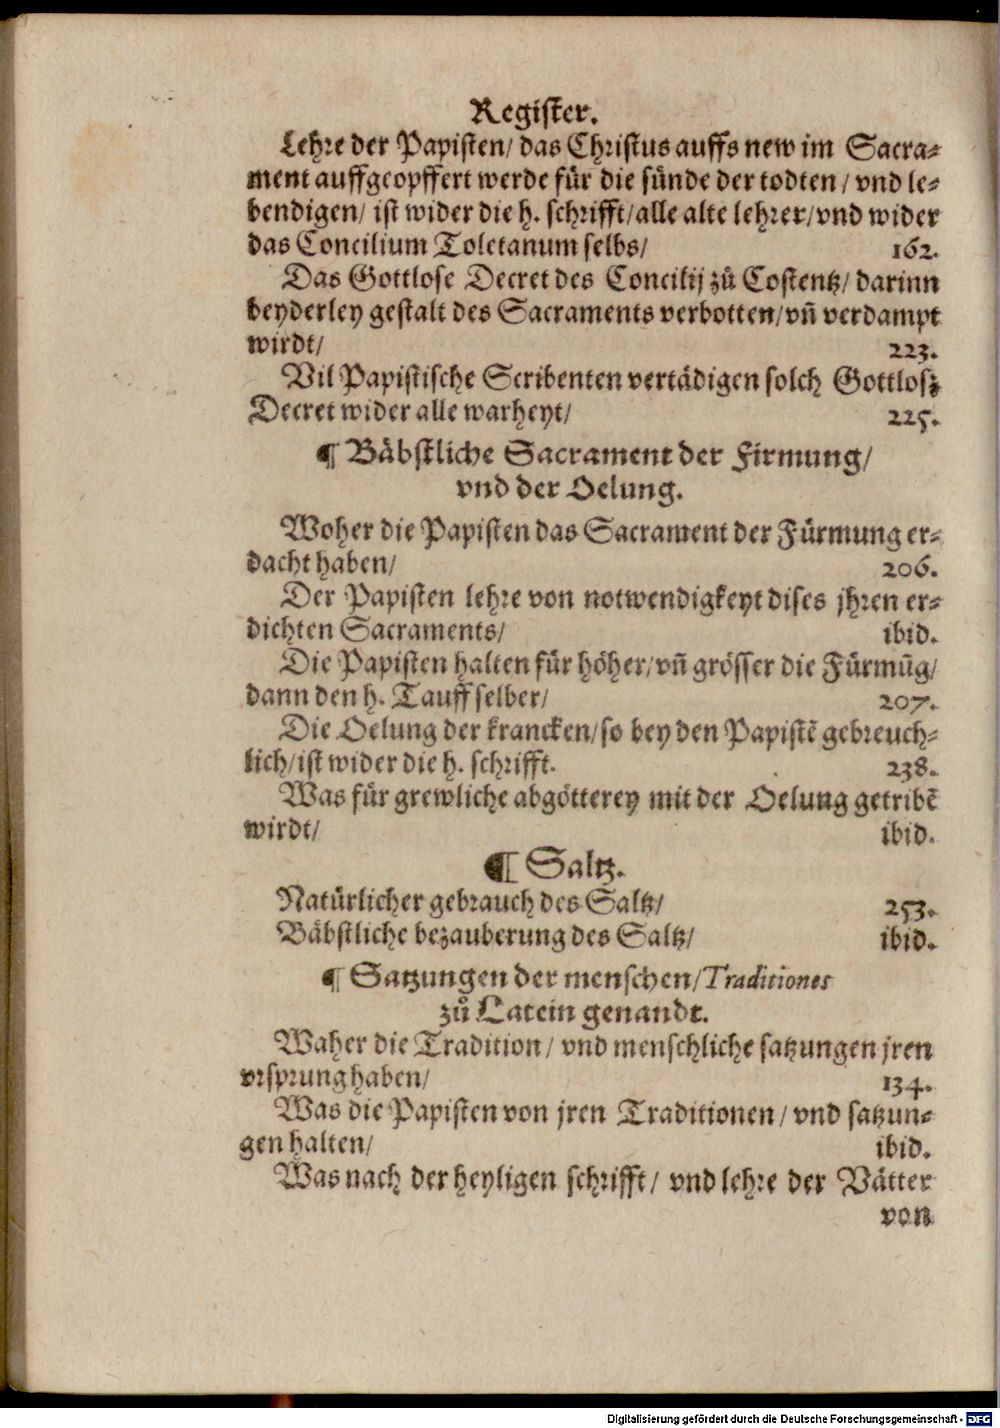 Register.
Lehre der Papisten/ das Christus auffs new im Sacra-
ment auffgeopffert werde für die sünde der todten/ vnd le-
bendigen/ ist wider die h. schrifft/ alle alte lehrer/ vnd wider
das Concilium Toletanum selbs/ 162.
Das Gottlose Decret des Concilij zů Costentz/ darinn
beyderley gestalt des Sacraments verbotten/ vñ verdampt
wirdt/ 223.
Vil Papistische Scribenten vertädigen solch Gottlosz
Decret wider alle warheyt/ 225.
¶ Bäbstliche Sacrament der Firmung/
vnd der Oelung.
Woher die Papisten das Sacrament der Fürmung er-
dacht haben/ 206.
Der Papisten lehre von notwendigkeyt dises jhren er-
dichten Sacraments/ ibid.
Die Papisten halten für höher/ vñ grösser die Fürmūg/
dann den h. Tauff selber/ 207.
Die Oelung der krancken/ so bey den Papistē gebreuch-
lich/ ist wider die h. schrifft. 238.
Was für grewliche abgötterey mit der Oelung getribē
wirdt/ ibid.
¶ Saltz.
Natürlicher gebrauch des Saltz/ 253.
Bäbstliche bezauberung des Saltz/ ibid.
¶ Satzungen der menschen/ Traditiones
zů Latein genandt.
Waher die Tradition/ vnd menschliche satzungen jren
vrsprung haben/ 134.
Was die Papisten von jren Traditionen/ vnd satzun-
gen halten/ ibid.
Was nach der heyligen schrifft/ vnd lehre der Vätter
von
Digitalisierung gefördert durch die Deutsche Forschungsgemeinschaft - DFG